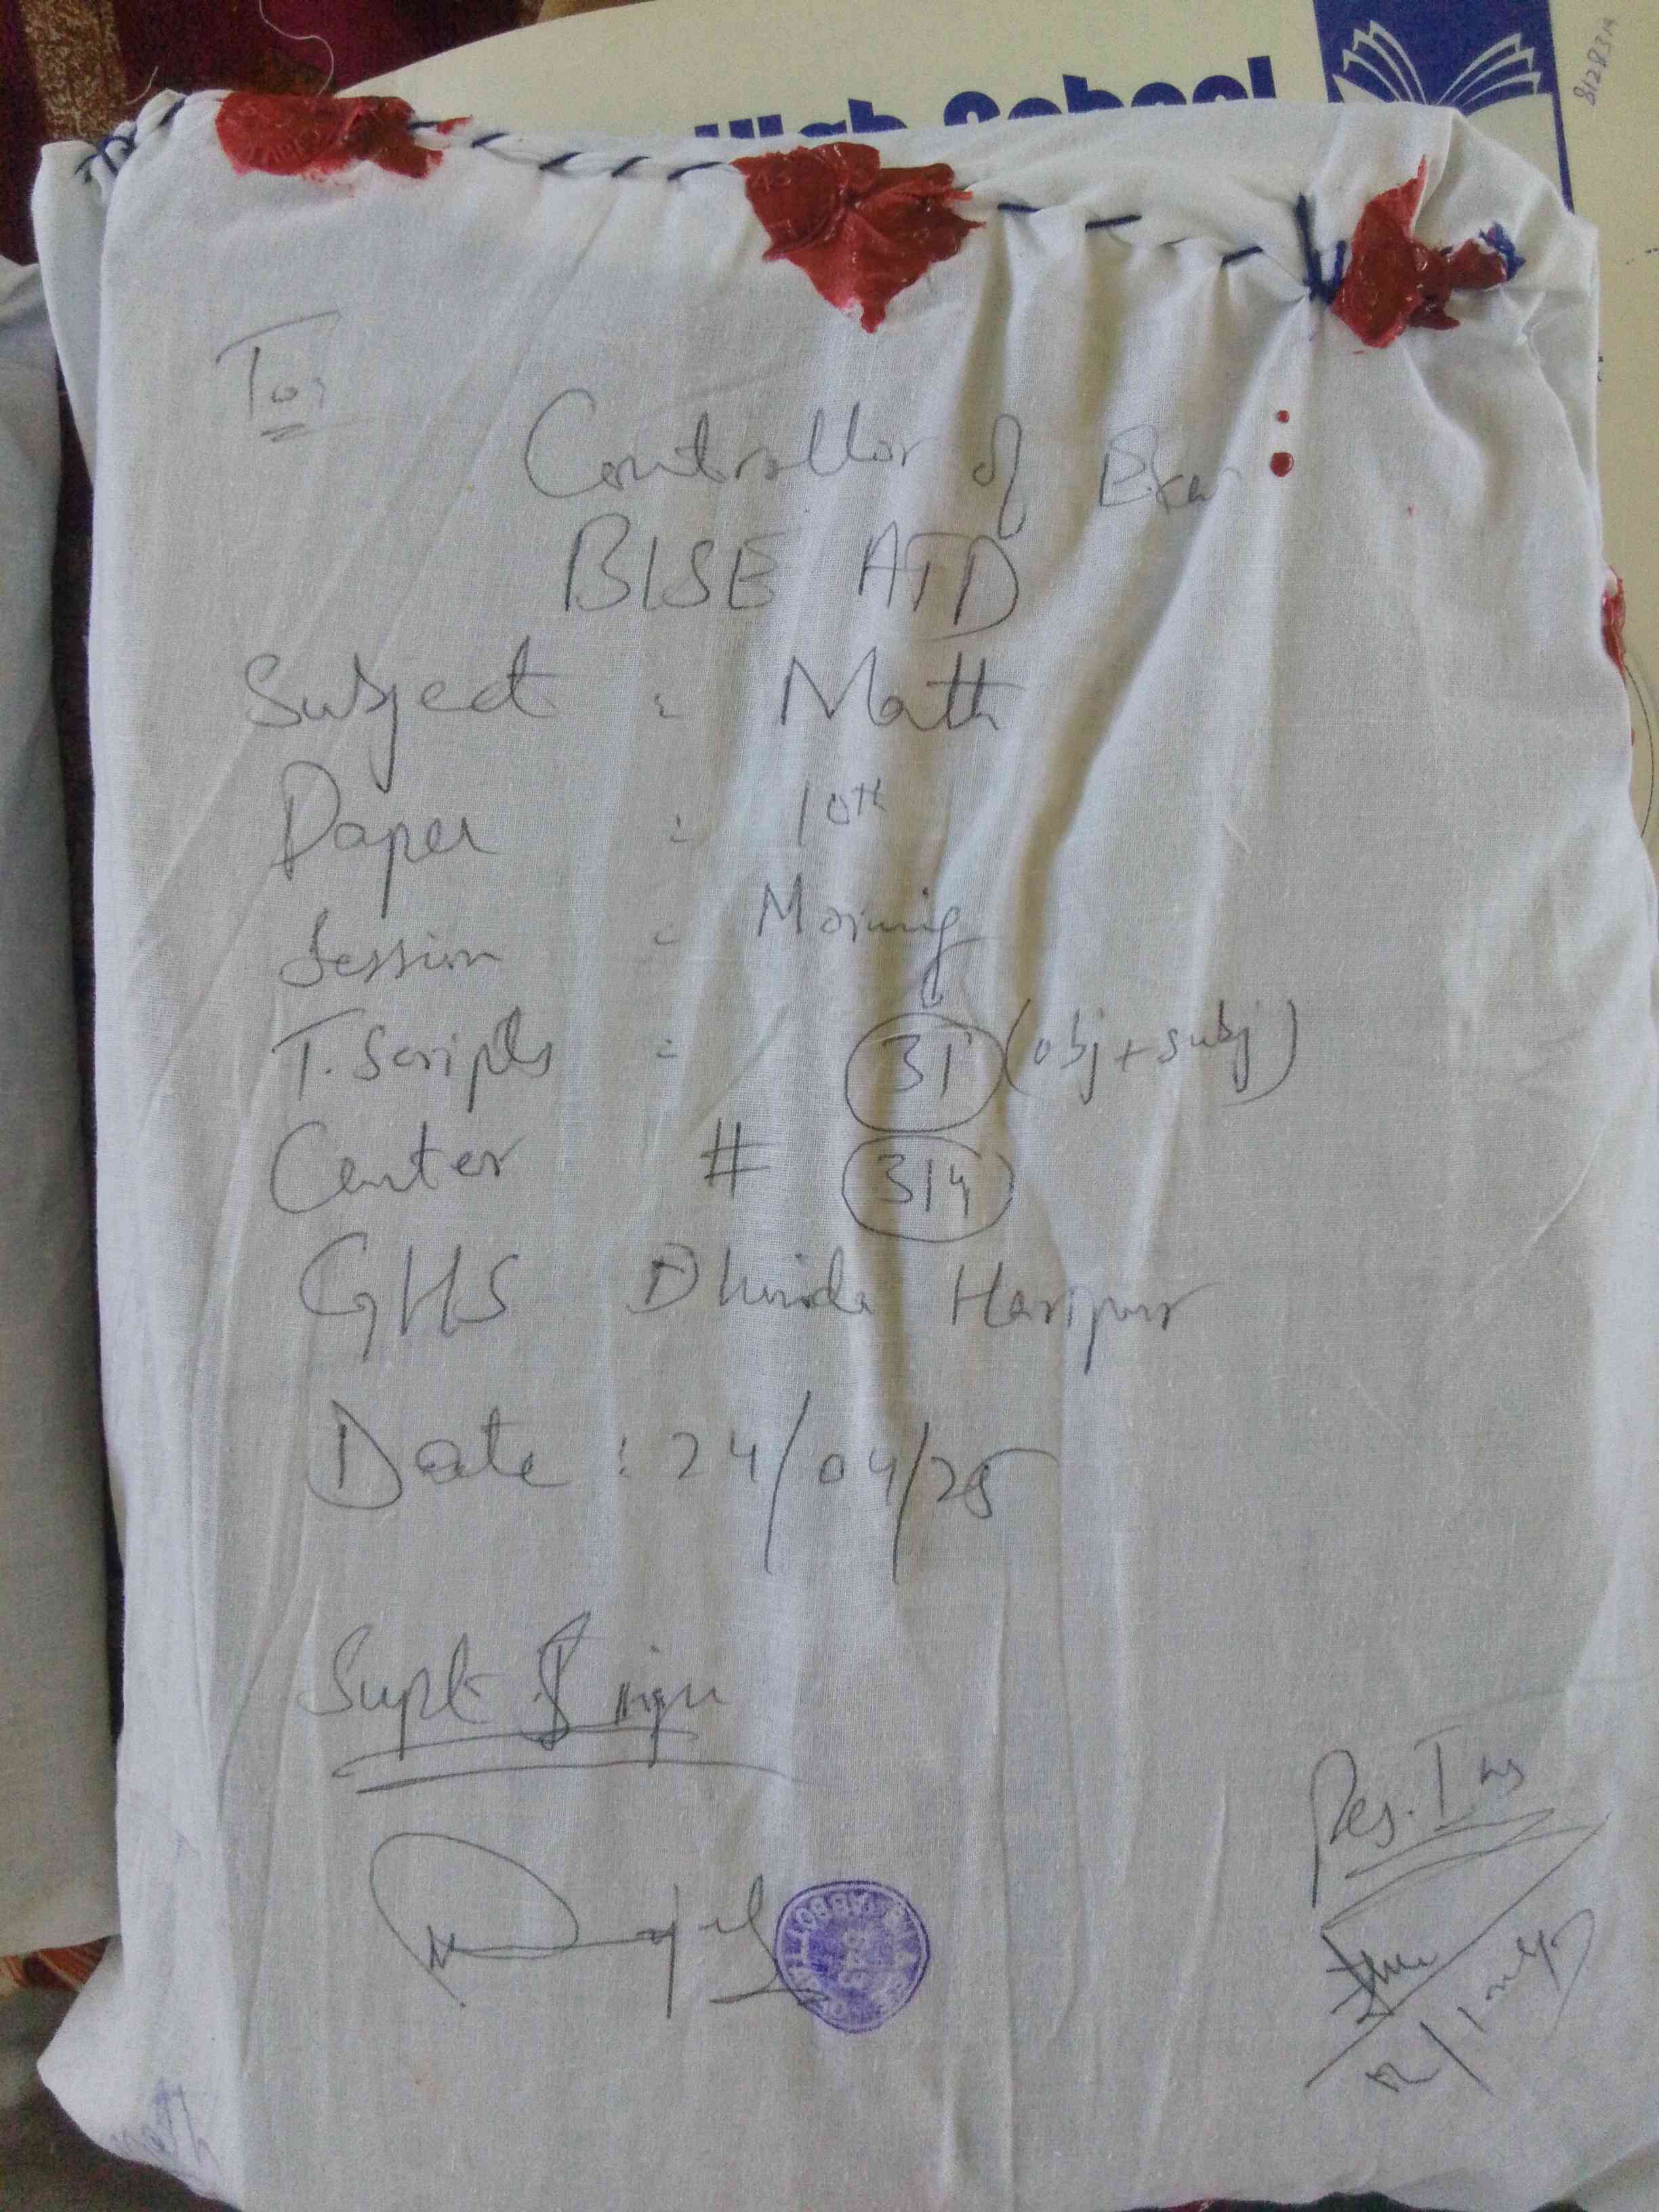 High School
To,
Controller of Exa
BISE ATD
Subject : Math
Paper : 10th
Session : Morning
T. Scripts : 31 (obj + subj)
Center # 314
GHS Dhinda Haripur
Date : 24/04/25
Supt Sign
Res. Ins